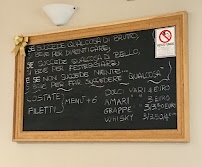 SE SUCCEDE QUALCOSA DI BRUTTO,
SI BEVE PER DIMENTICARE;
SE SUCCEDE QUALCOSA DI BELLO,
SI BEVE PER FESTEGGIARE;
E SE NON SUCCEDE NIENTE...
SI BEVE PER FAR SUCCEDERE QUALCOSA
COSTATE
FILETTI
MENÙ +6
DOLCI VARI 4 EURO
AMARI 3 EURO
GRAPPE 3/3,50 EURO
WHISKY